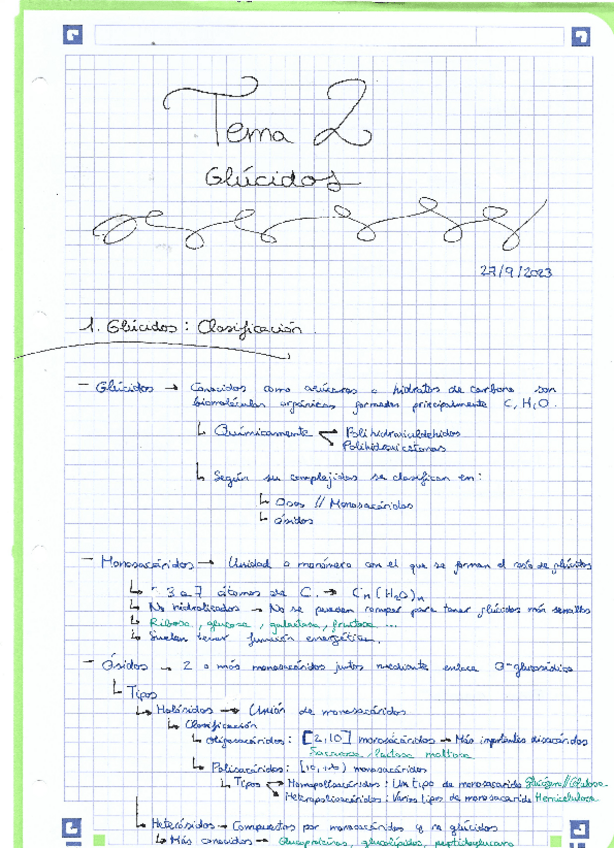 Tema 2
Glúcidos
27/9/2023
1. Glúcidos: Clasificación.
- Glúcidos → Conocidos como azúcares o hidratos de carbono son
biomoléculas orgánicas formadas principalmente C, H, O.
↳ Químicamente Polihidroxialdehídos
Polihidroxicetonas
↳ Según su complejidad se clasifican en:
↳ Osas // Monosacáridos
↳ Ósidos
- Monosacáridos → Unidad o monómero con el que se forman el resto de glúcidos
↳ 3 a 7 átomos de C. → Cn(H2O)n
↳ No hidrolizados → No se pueden romper para tener glúcidos más sencillos
↳ Ribosa, glucosa, galactosa, fructosa ...
↳ Suelen tener función energética.
- Ósidos → 2 o más monosacáridos juntos mediante enlace O-glucosídico
↳ Tipos
↳ Holósidos → Unión de monosacáridos
↳ Clasificación
↳ Oligosacáridos: [2,10] monosacáridos → Más importantes disacáridos
Sacarosa, lactosa, maltosa
↳ Polisacáridos: [10, +∞) monosacáridos
↳ Tipos Homopolisacáridos: Un tipo de monosacárido
Heteropolisacáridos: Varios tipos de monosacárido Hemicelulosa
↳ Heterósidos → Compuestos por monosacáridos y no glúcidos
↳ Más conocidos → Glucoproteínas, glucolípidos, peptidoglucano